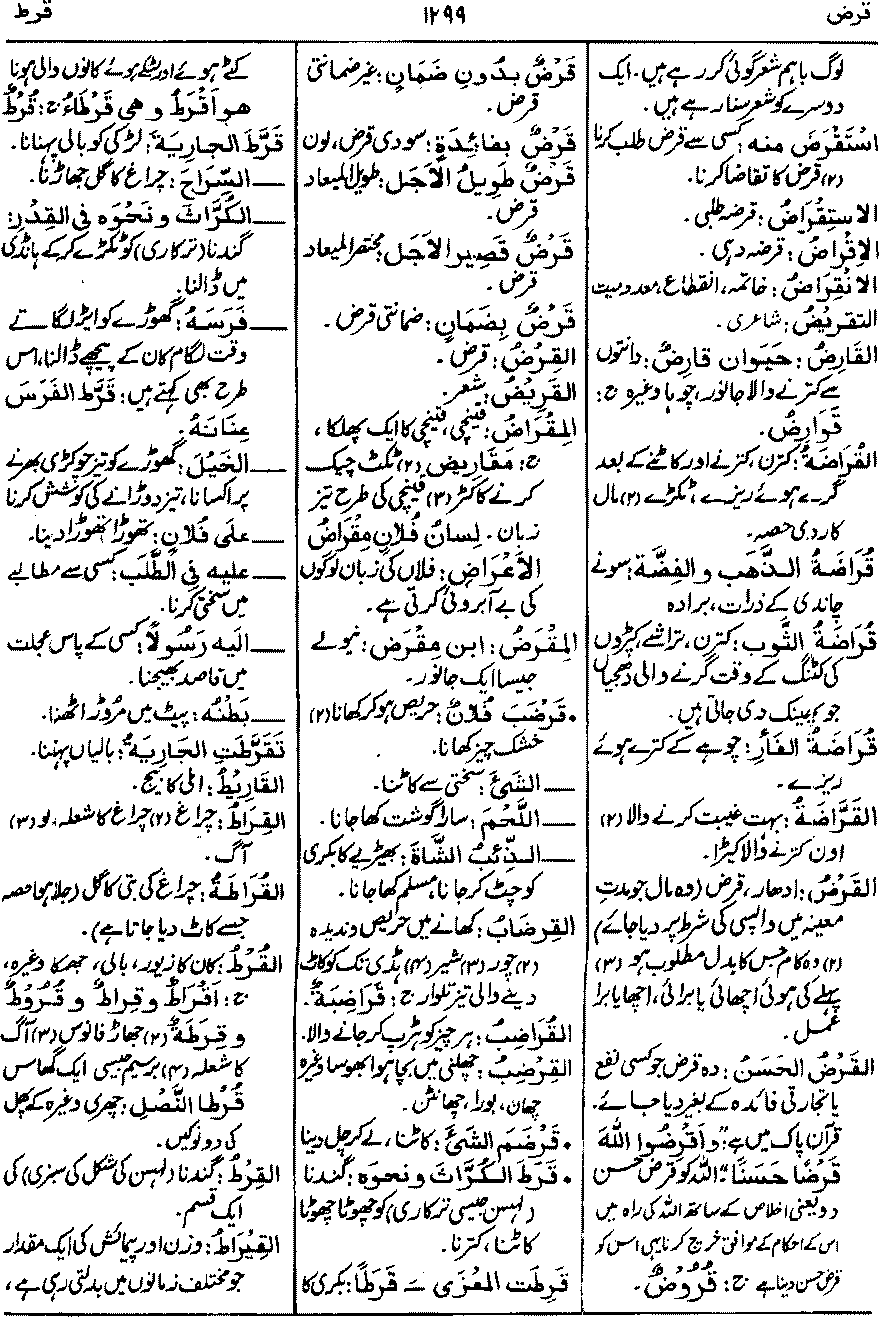 قرض ۱۲۹۹ قرط
لوگ باہم شعر گوئی کر رہے ہیں۔ ایک
دوسرے کو شعر سنا رہے ہیں۔
اسْتَقْرَضَ منه: کسی سے قرض طلب کرنا
(۲) قرض کا تقاضا کرنا۔
الاسْتِقْرَاضُ: قرضہ طلبی۔
الإقْرَاضُ: قرضہ دہی۔
الانْقِرَاضُ: خاتمہ، انقطاع، معدومیت
التقریضُ: شاعری۔
القَارِضُ: حَیَوان قارِضٌ: دانتوں
سے کترنے والا جانور، چوہا وغیرہ ج:
قَوَارِضُ۔
القُرَاضَةُ: کترن، کترنے اور کاٹنے کے بعد
گرے ہوئے ریزے، ٹکڑے (۲) مال
کا ردی حصہ۔
قُرَاضَةُ الذَّهَبِ و الفِضَّةِ: سونے
چاندی کے ذرات، برادہ
قُرَاضَةُ الثَّوبِ: کترن، تراشے، کپڑوں
کی کٹنگ کے وقت گرنے والی دھجیاں
جو پھینک دی جاتی ہیں۔
قُرَاضَةُ الفَأرِ: چوہے کے کترے ہوئے
ریزے۔
القَرَّاضَةُ: بہت غیبت کرنے والا (۲)
اون کترنے والا کیڑا۔
القَرْضُ: ادھار، قرض (وہ مال جو مدتِ
معینہ میں واپسی کی شرط پر دیا جائے)
(۲) وہ کام جس کا بدل مطلوب ہو (۳)
پہلے کی ہوئی اچھائی یا برائی، اچھا یا برا
عمل۔
القَرْضُ الحَسَنُ: وہ قرض جو کسی نفع
یا تجارتی فائدہ کے بغیر دیا جائے۔
قرآن پاک میں ہے: "وَأَقْرِضُوا اللّٰهَ
قَرْضًا حَسَنًا" اللہ کو قرضِ حسن
دو یعنی اخلاص کے ساتھ اللہ کی راہ میں
اس کے احکام کے موافق خرچ کرنا ہی اس کو
قرض حسن دینا ہے ج: قُرُوْضٌ۔
قَرْضٌ بِدُونِ ضَمَانٍ: غیر ضمانتی
قرض۔
قَرْضٌ بِفَائِدَةٍ: سودی قرض، لون
قَرْضٌ طَوِيلُ الأجَلِ: طویل المیعاد
قرض۔
قَرْضٌ قَصِيرُ الأجَلِ: مختصر المیعاد
قرض۔
قَرْضٌ بِضَمَانٍ: ضمانتی قرض۔
القِرْضُ: قرض۔
القَرِيْضُ: شعر۔
المِقْرَاضُ: قینچی، قینچی کا ایک پھلکا،
ج: مَقَارِيضُ (۲) ٹکٹ چیک
کرنے کا کٹر (۳) قینچی کی طرح تیز
زبان۔ لِسانُ فُلَانٍ مِقْرَاضُ
الأعْرَاضِ: فلاں کی زبان لوگوں
کی بے آبروئی کرتی ہے۔
المِقْرَضُ: ابن مِقْرَض: نیولے
جیسا ایک جانور۔
• قَرْضَبَ فُلانٌ: حریص ہو کر کھانا (۲)
خشک چیز کھانا۔
— الشَّئَ: سختی سے کاٹنا۔
— اللَّحْمَ: سارا گوشت کھا جانا۔
— الذِّئبُ الشَّاةَ: بھیڑیے کا بکری
کو چٹ کر جانا، مسلم کھا جانا۔
القِرضَابُ: کھانے میں حریص و ندیدہ
(۲) چور (۳) شیر (۴) ہڈی تک کو کاٹ
دینے والی تیز تلوار ج: قَرَاضِبَةٌ۔
القُرَاضِبُ: ہر چیز کو ہڑپ کر جانے والا۔
القِرْضِبُ: چھلنی میں بچا ہوا بھوسا وغیرہ
چھان، بورا، چھانٹن۔
• قَرْضَمَ الشَّئَ: کاٹنا، لے کر چل دینا
• قَرَطَ الكُرَّاثَ ونحوَه: گندنا
(لہسن جیسی ترکاری) کو چھوٹا چھوٹا
کاٹنا، کترنا۔
قَرِطَت المِعْزَى ـَ قَرَطًا: بکری کا
کٹے ہوئے اور لٹکے ہوئے کانوں والی ہونا
هو أقْرَطُ و هي قَرْطَاءُ ج: قُرْطٌ
قَرَّطَ الجاريةَ: لڑکی کو بالی پہنانا۔
— السِّرَاجَ: چراغ کا گل جھاڑنا۔
— الكُرَّاثَ و نَحْوَه في القِدْرِ:
گندنا (ترکاری) کو ٹکڑے کر کے ہانڈی
میں ڈالنا۔
— فَرَسَهُ: گھوڑے کو ایڑ لگاتے
وقت لگام کان کے پیچھے ڈالنا، اس
طرح بھی کہتے ہیں: قَرَّطَ الفَرَسَ
عِنَانَهُ۔
— الخَيْلَ: گھوڑے کو تیز چوکڑی بھرنے
پر اکسانا، تیز دوڑانے کی کوشش کرنا
— علَى فُلَانٍ: تھوڑا تھوڑا دینا۔
— عليه في الطَّلَبِ: کسی سے مطالبے
میں سختی کرنا۔
— اليه رَسُولاً: کسی کے پاس عجلت
میں قاصد بھیجنا۔
— بَطْنُهُ: پیٹ میں مروڑ اٹھنا۔
تَقَرَّطَتِ الجَاريةُ: بالیاں پہننا۔
القَارِيطُ: املی کا بیج۔
القِرَاطُ: چراغ (۲) چراغ کا شعلہ، لو (۳)
آگ۔
القُرَاطَةُ: چراغ کی بتی کا گل (جلا ہوا حصہ
جسے کاٹ دیا جاتا ہے)۔
القُرْطُ: کان کا زیور، بالی، جھمکا وغیرہ،
ج: أقْرَاطٌ وقِرَاطٌ و قُرُوْطٌ
و قِرَطَةٌ (۲) جھاڑ فانوس (۳) آگ
کا شعلہ (۴) برسیم جیسی ایک گھاس
قُرْطَا النَّصْلِ: چھری وغیرہ کے پھل
کی دو نوکیں۔
القِرْطُ: گندنا (لہسن کی شکل کی سبزی) کی
ایک قسم۔
القِيْرَاطُ: وزن اور پیمائش کی ایک مقدار
جو مختلف زمانوں میں بدلتی رہی ہے،